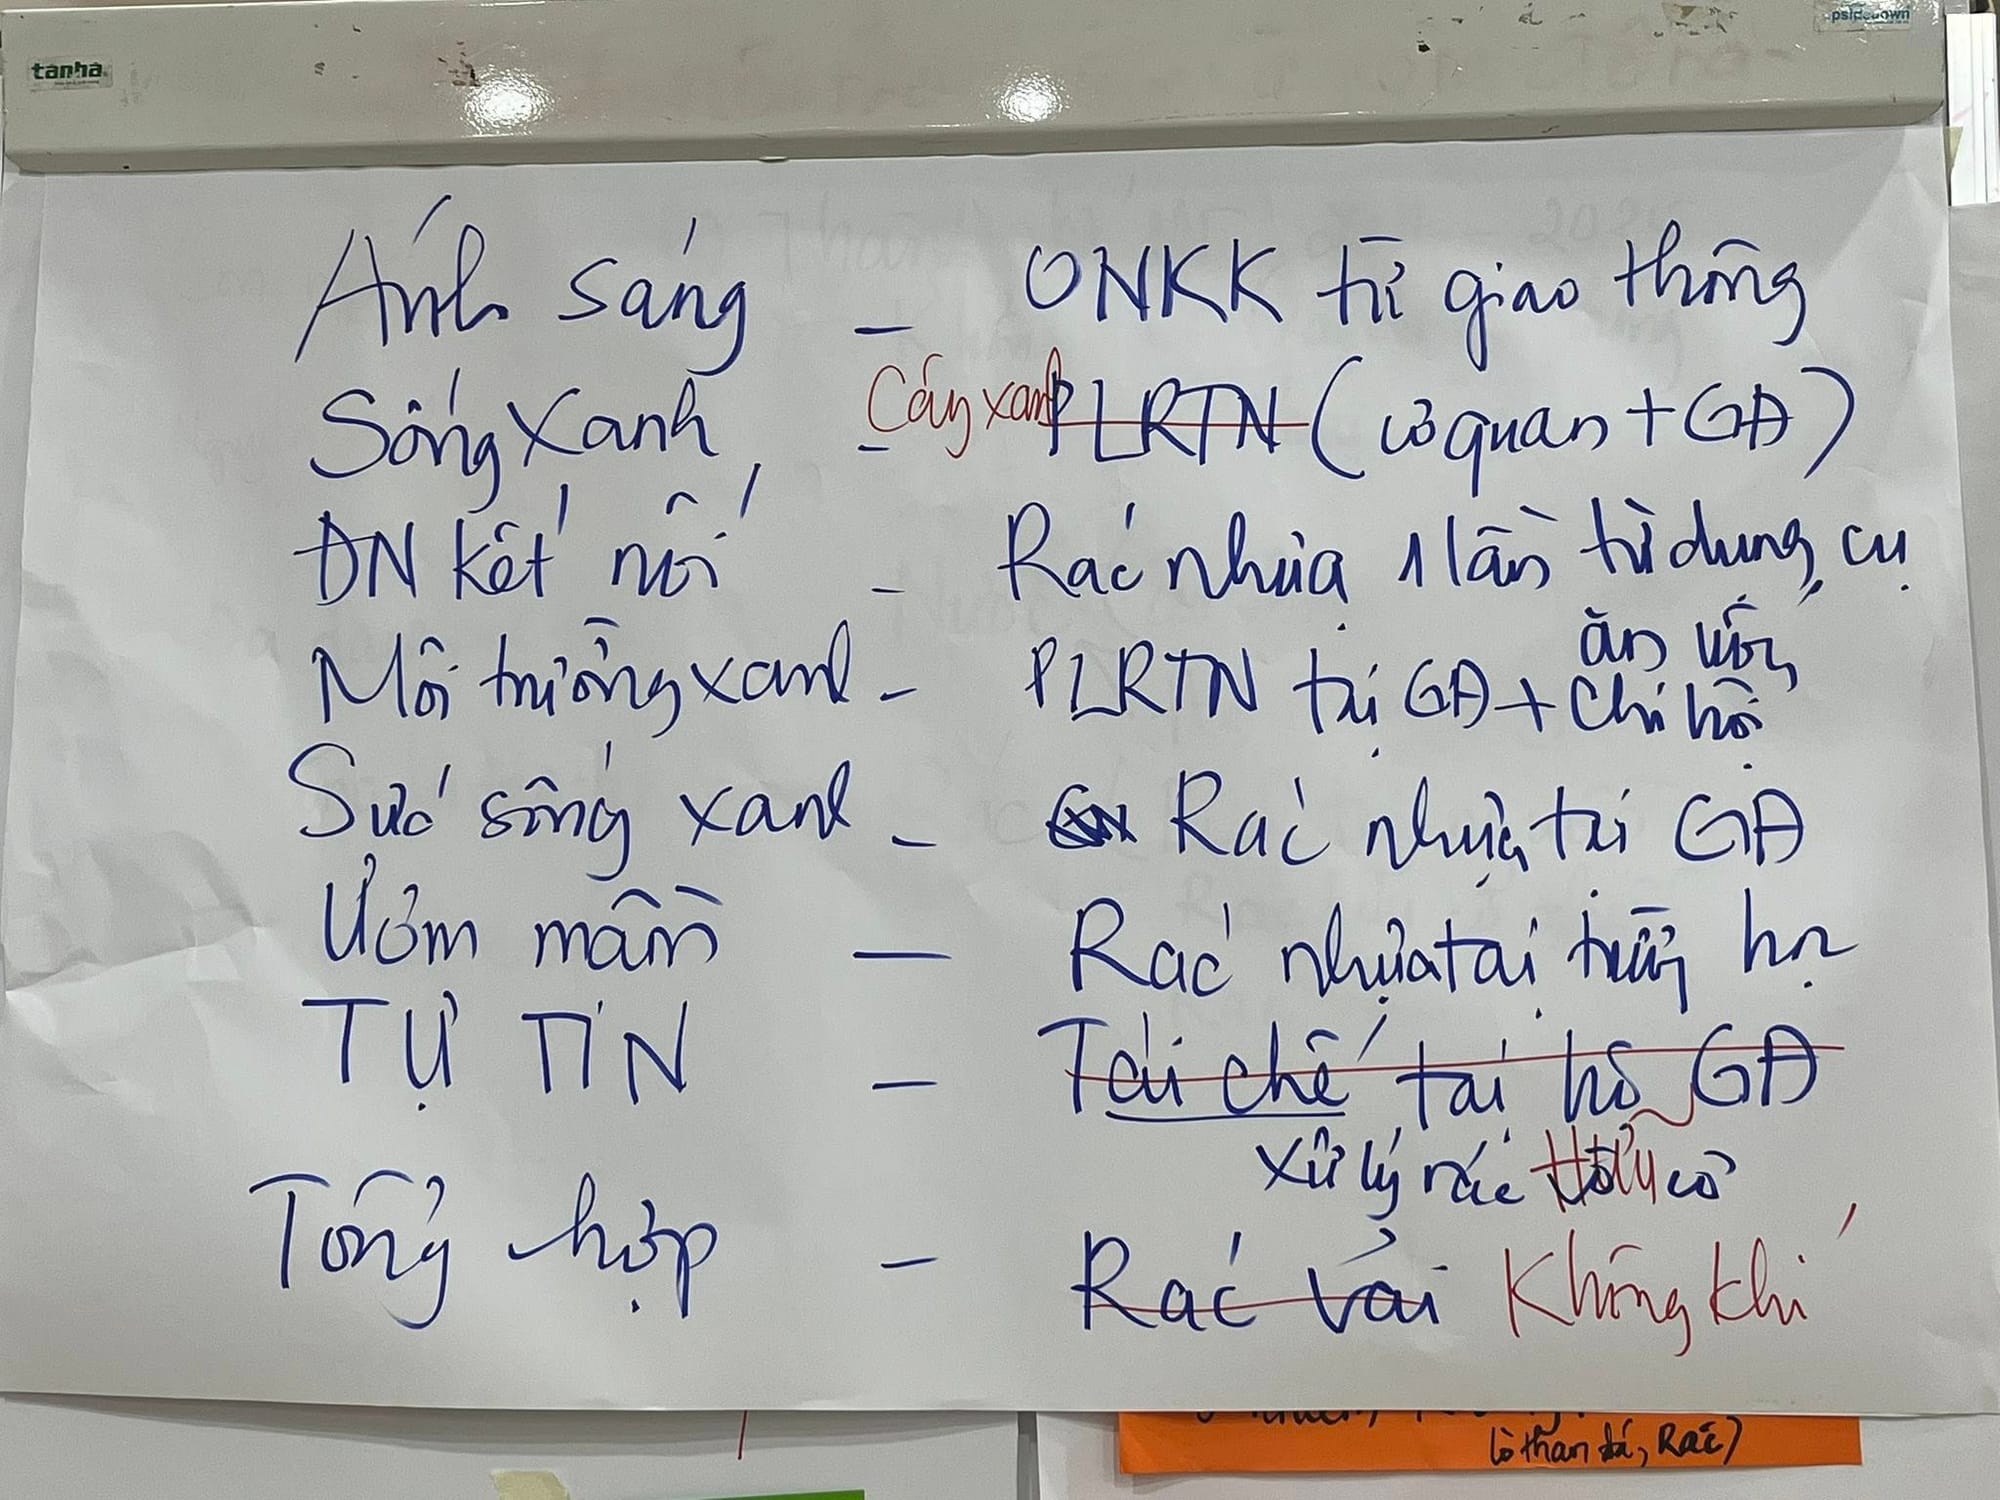 tanhà
psidedown
Ánh sáng - ONKK từ giao thông
Sống xanh - Cây xanh PLRTN (cơ quan + GĐ)
ĐN kết nối - Rác nhựa 1 lần từ dụng cụ
ăn uống
Môi trường xanh - PLRTN tại GĐ + Chi hội
Sức sống xanh - Rác nhựa tại GĐ
Ươm mần - Rác nhựa tại trường học
TỰ TIN - Tái chế tại hộ GĐ
xử lý rác Hữu cơ
Tổng hợp - Rác vải Không khí
lò than đá, Rác)